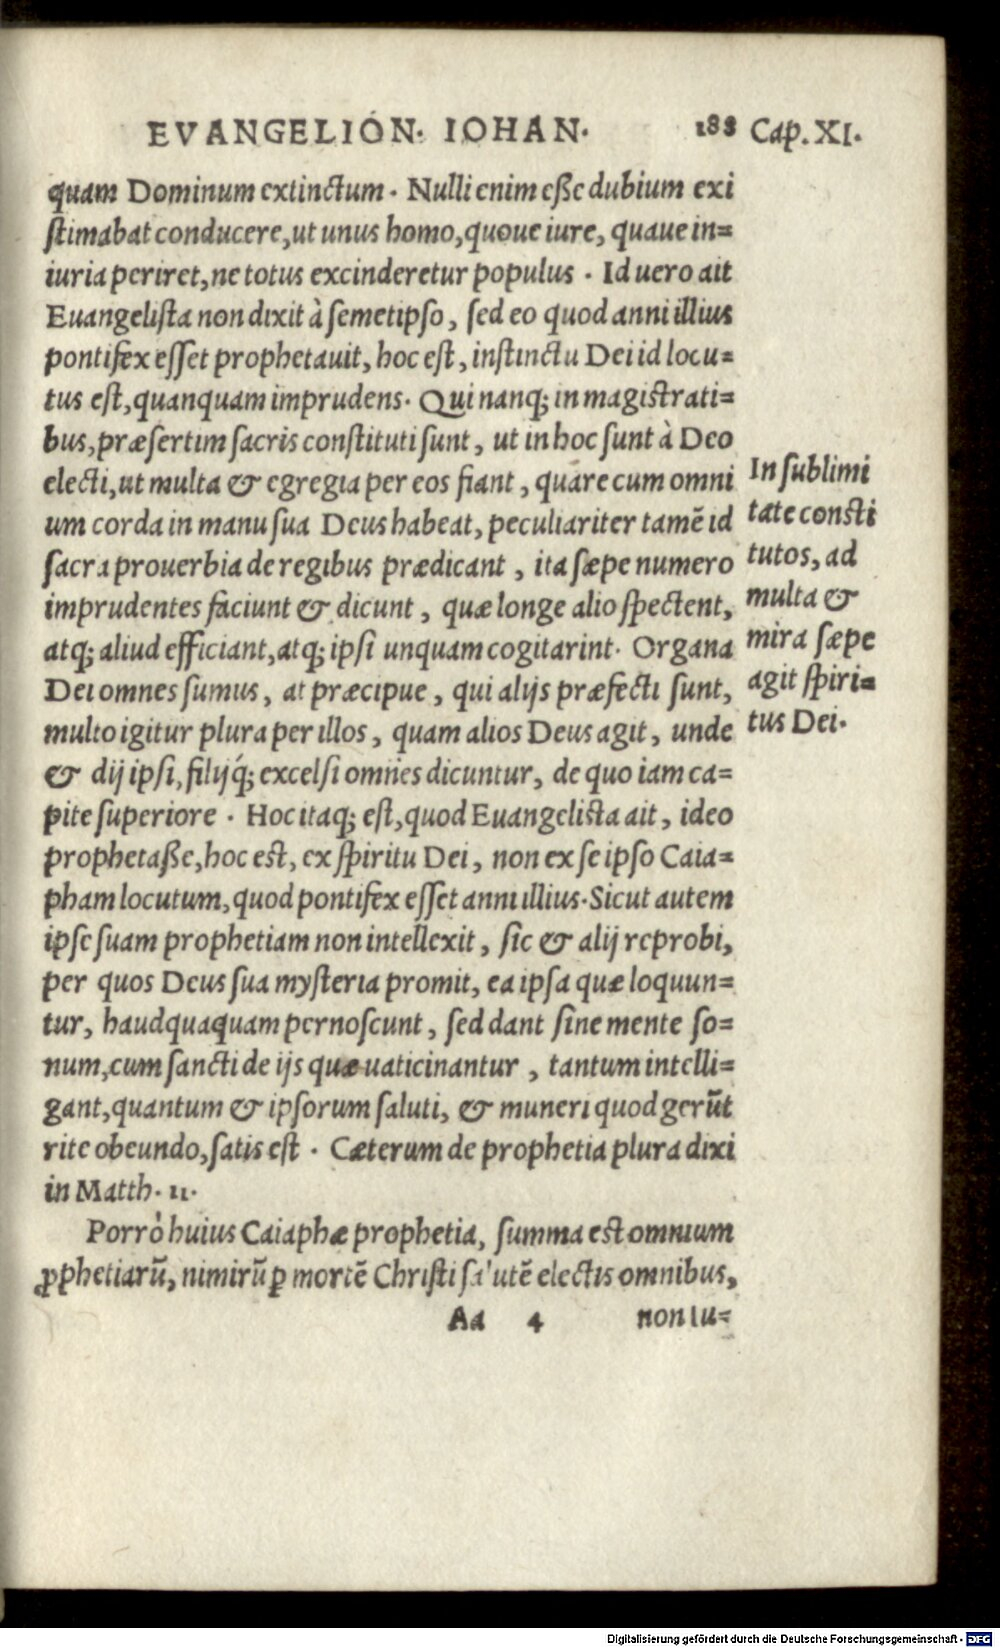 EVANGELION. IOHAN. 188 Cap. XI.
quam Dominum extinctum. Nulli enim eße dubium exi
stimabat conducere, ut unus homo, quoue iure, quaue in=
iuria periret, ne totus excinderetur populus. Id uero ait
Euangelista non dixit à semetipso, sed eo quod anni illius
pontifex esset prophetauit, hoc est, instinctu Dei id locu=
tus est, quanquam imprudens. Qui nanq; in magistrati=
bus, præsertim sacris constituti sunt, ut in hoc sunt à Deo
electi, ut multa & egregia per eos fiant, quare cum omni
um corda in manu sua Deus habeat, peculiariter tamē id
sacra prouerbia de regibus prædicant, ita sæpe numero
imprudentes faciunt & dicunt, quæ longe alio spectent,
atq; aliud efficiant, atq; ipsi unquam cogitarint. Organa
Dei omnes sumus, at præcipue, qui alijs præfecti sunt,
multo igitur plura per illos, quam alios Deus agit, unde
& dij ipsi, filijq́; excelsi omnes dicuntur, de quo iam ca=
pite superiore. Hoc itaq; est, quod Euangelista ait, ideo
prophetaße, hoc est, ex spiritu Dei, non ex se ipso Caia=
pham locutum, quod pontifex esset anni illius. Sicut autem
ipse suam prophetiam non intellexit, sic & alij reprobi,
per quos Deus sua mysteria promit, ea ipsa quæ loquun=
tur, haudquaquam pernoscunt, sed dant sine mente so=
num, cum sancti de ijs quæ uaticinantur, tantum intelli=
gant, quantum & ipsorum saluti, & muneri quod gerūt
rite obeundo, satis est. Cæterum de prophetia plura dixi
in Matth. 11.
Porrò huius Caiaphæ prophetia, summa est omnium
ꝓphetiarū, nimirū ꝑ mortē Christi sa'utē electis omnibus,
Aa 4 non Iu=
In sublimi
tate consti
tutos, ad
multa &
mira sæpe
agit spiri=
tus Dei.
Digitalisierung gefördert durch die Deutsche Forschungsgemeinschaft - DFG